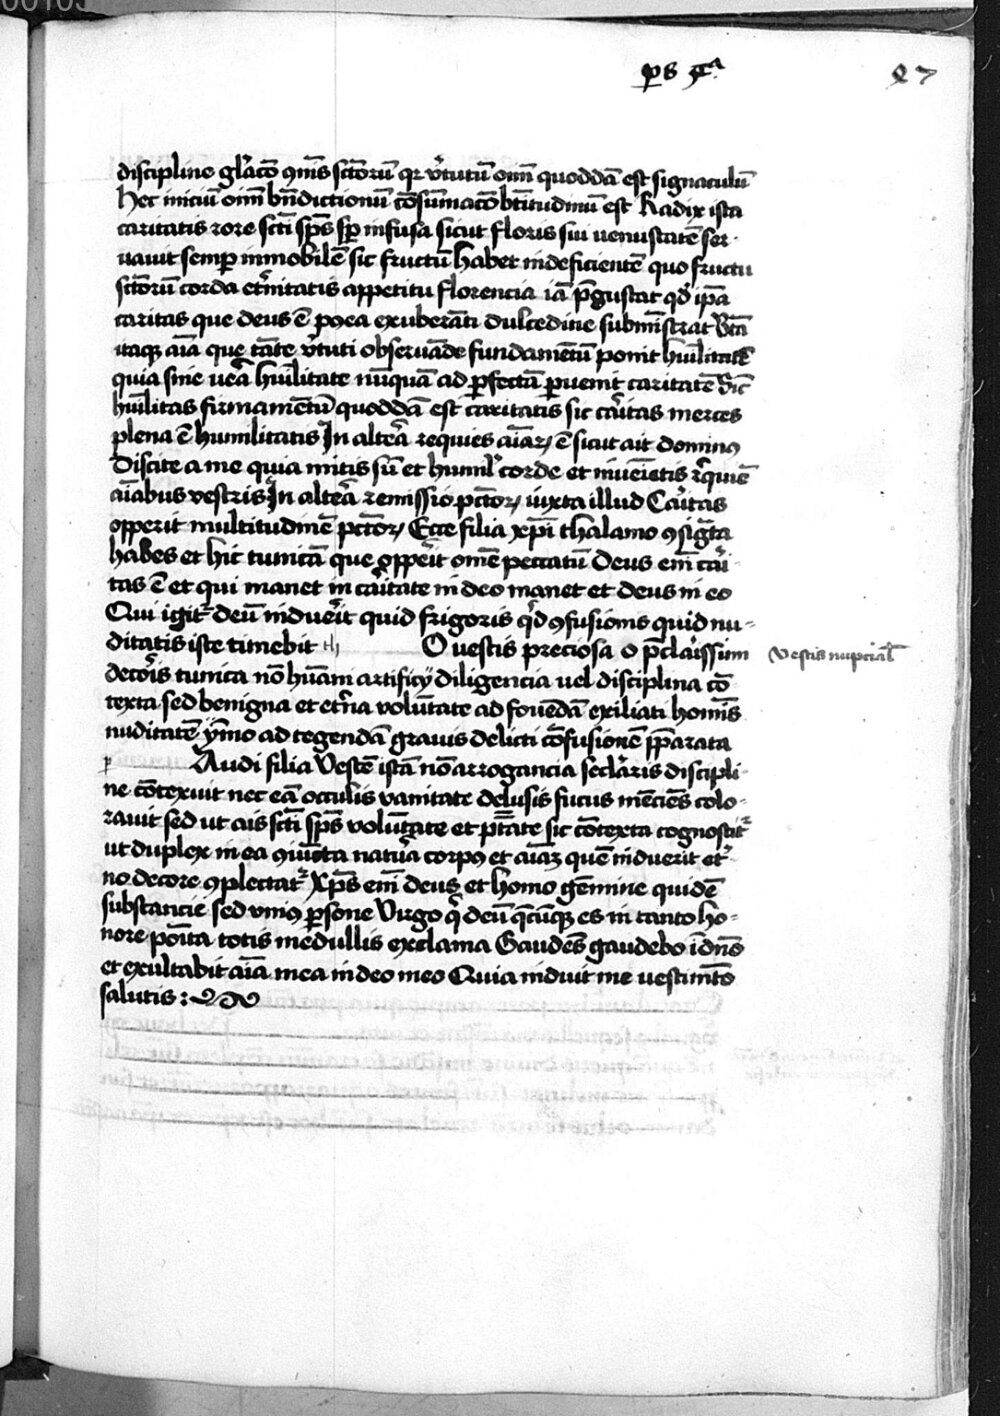 ps 4ᵃ
27
discipline gl'aco͞ 9mi͞s scto͞ru͞ qr v'tutu͞ oi͞m quodda͞ est signaculu͞
hec iniciu͞ oi͞m bn͞dictionu͞ co͞su͞maco͞ bt͞itudinu͞ est Radix ista
caritatis rore scti͞ sps͞ sp͞ infusa sicut floris sui venustate͞ ser-
vauit semp immobile͞ sic fructu͞ habet indeficiente͞ quo fructu
scto͞ru͞ corda et'nitatis appetitu florencia ia͞ p͞gustat qd' ip͞a
caritas que deus e͞ exubera͞ti dulcedine submi͞strat
itaq aia͞ que ta͞te v'tuti obserua͞de fundame͞tu͞ ponit hu͞ilitate͞
quia sine vera hu͞ilitate nu͞qua͞ ad pfecta͞ puenit caritate͞ Sic͞
hu͞ilitas firmame͞tu͞ quodda͞ est caritatis sic ca'itas merces
plena e͞ humilitatis In alte'a requies aia͞rꝝ e͞ sicut ait dominus
Discite a me quia mitis su͞ et humil' corde et inueni͞etis r'quie͞
aia͞bus vestris In alte'a remissio pcto͞rꝝ iuxta illud Ca'itas
opperit multitudine͞ pcto͞rꝝ Ecce filia xpi͞ thalamo 9sig͞ta
habes et hic tunica͞ que opp'it ome͞ peccatu͞ Deus eni͞ ca'i-
tas e͞ et qui manet in ca'itate in deo manet et deus in eo
Qui igit' deu͞ indue'it quid frigoris qd' 9fusionis quid nu-
ditatis iste timebit O vestis preciosa o p͞cla'issim
Vestis nupcial'
deco'is tunica no͞ hu͞am artificij diligencia vel disciplina co͞
texta sed benigna et et'na volu͞tate ad foue͞da͞ exiliati homi͞s
nuditate͞ ymo ad tegenda͞ grauis delicti co͞fusione͞ pp͞arata
Audi filia Veste͞ ista͞ no͞ arrogancia secl'aris discipli-
ne co͞texiuit nec ea͞ occulis vanitate delusis fucus me͞cie͞s colo-
rauit sed ut cuis scti͞ sps͞ volu͞tate et pt͞ate sic co͞texta cognoscit'
ut duplex in ea 9iu͞cta natu'a corp9 et aia͞z que͞ induerit et'-
no decore 9plectat' Xps͞ eni͞ deus et homo ge͞mine quide͞
substancie sed vni9 psone Virgo q' deu͞ es in tanto ho-
nore po͞ita totis medullis exclama Gaude͞s gaudebo i͞ dn͞o
et exultabit aia͞ mea in deo meo Quia induit me vestime͞to
salutis :